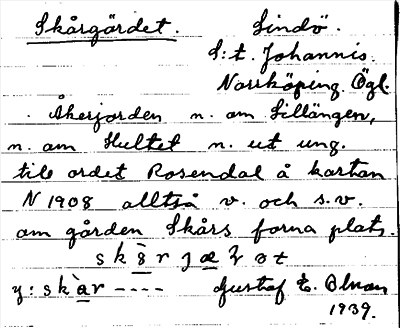 Skårgärdet. Lindö.
S:t. Johannis.
Norrköping. Ögl.
Åkerjorden n. om Lillängen,
n. om Hultet n. ut ung.
till ordet Rosendal å kartan
N 1908 alltså v. och s.v.
om gården Skårs forna plats.
y: skàr ----
Gustaf E. Olman
1939.